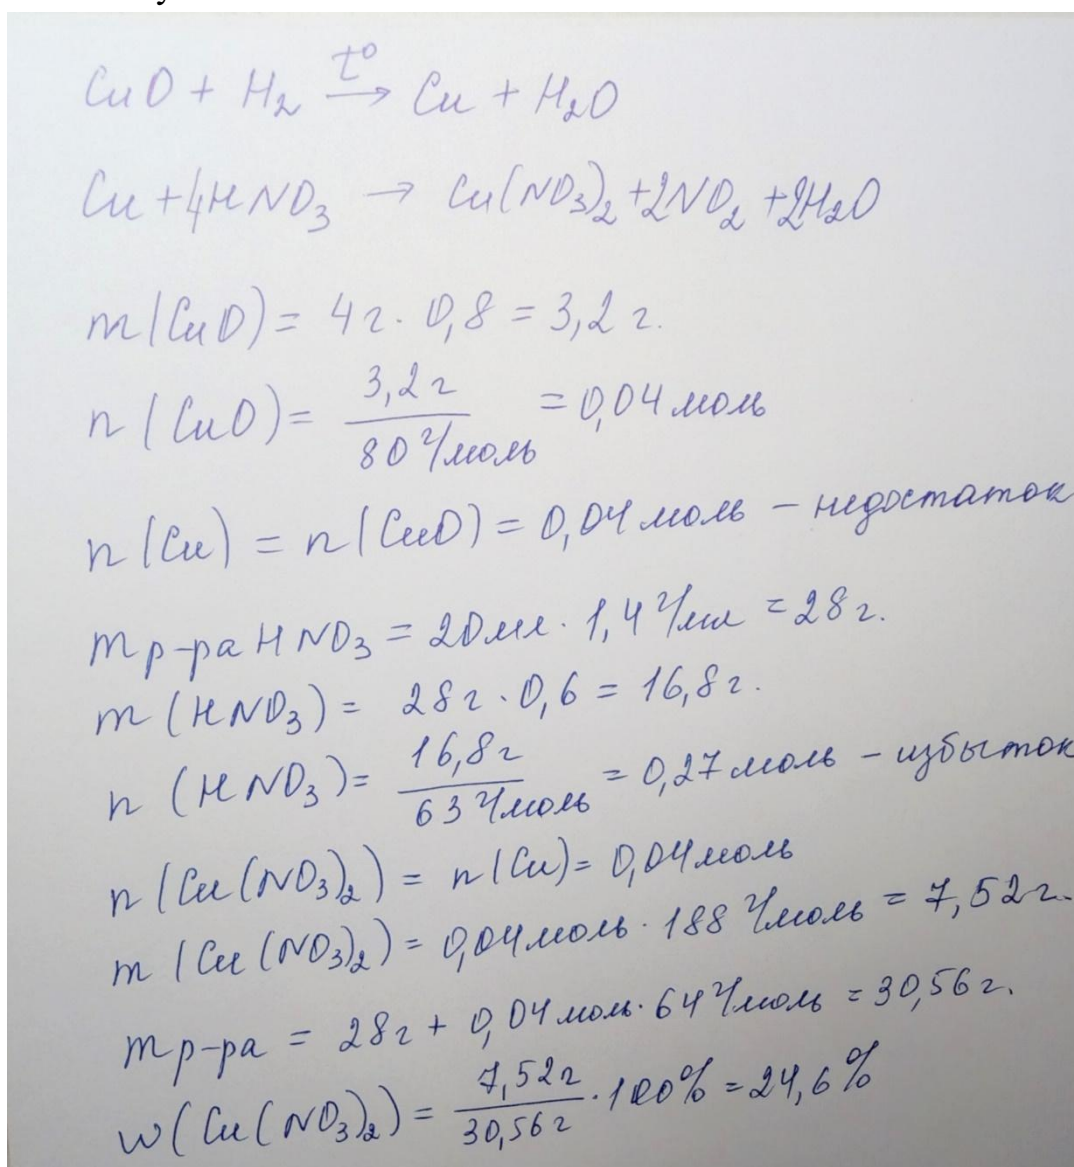 CuO + H₂ t° → Cu + H₂O
Cu + 4HNO₃ → Cu(NO₃)₂ + 2NO₂ + 2H₂O
m(CuO) = 4г · 0,8 = 3,2 г.
n(CuO) = 3,2 г / 80 г/моль = 0,04 моль
n(Cu) = n(CuO) = 0,04 моль – недостаток
m р-ра HNO₃ = 20 мл · 1,4 г/мл = 28 г.
m(HNO₃) = 28 г · 0,6 = 16,8 г.
n(HNO₃) = 16,8 г / 63 г/моль = 0,27 моль – избыток
n(Cu(NO₃)₂) = n(Cu) = 0,04 моль
m(Cu(NO₃)₂) = 0,04 моль · 188 г/моль = 7,52 г.
m р-ра = 28 г + 0,04 моль · 64 г/моль = 30,56 г.
w(Cu(NO₃)₂) = 7,52 г / 30,56 г · 100% = 24,6%